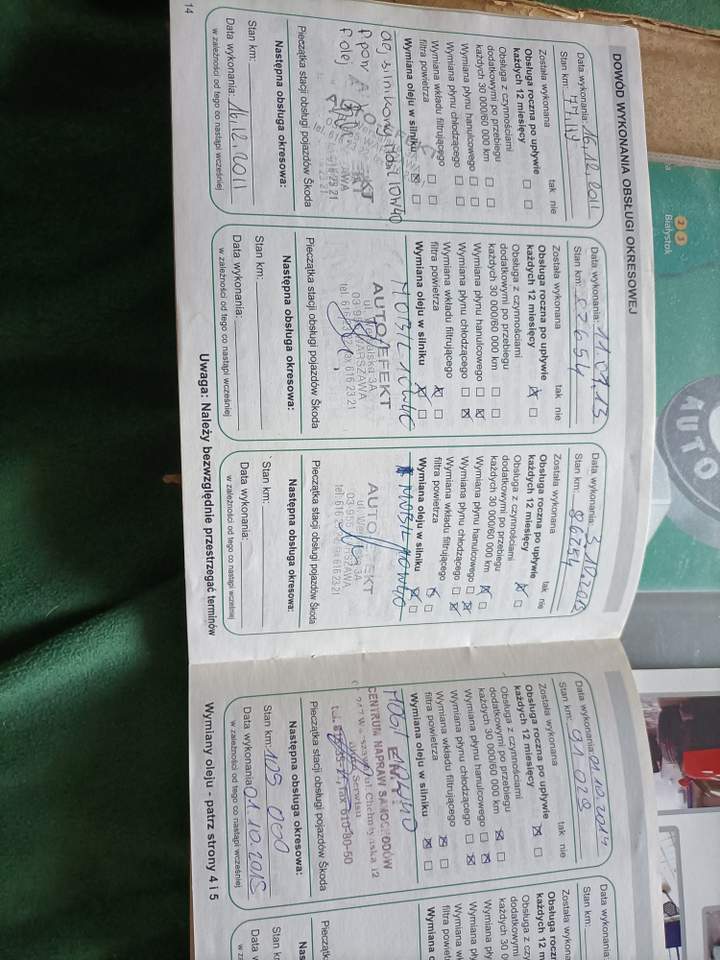 DOWÓD WYKONANIA OBSŁUGI OKRESOWEJ
Data wykonania: 16.12.2011
Stan km:
Została wykonana tak nie
Obsługa roczna po upływie
każdych 12 miesięcy
Obsługa z czynnościami
dodatkowymi po przebiegu
każdych 30 000/60 000 km
Wymiana płynu hamulcowego
Wymiana płynu chłodzącego
Wymiana wkładu filtrującego
filtra powietrza
Wymiana oleju w silniku
olej silnikowy 10W40
Pieczątka stacji obsługi pojazdów Škoda
Następna obsługa okresowa:
Stan km:
Data wykonania: 16.12.2011
w zależności od tego co nastąpi wcześniej
14
Data wykonania: 11.01.13
Stan km: 82654
Została wykonana tak nie
Obsługa roczna po upływie
każdych 12 miesięcy
Obsługa z czynnościami
dodatkowymi po przebiegu
każdych 30 000/60 000 km
Wymiana płynu hamulcowego
Wymiana płynu chłodzącego
Wymiana wkładu filtrującego
filtra powietrza
Wymiana oleju w silniku
MOBIL 10W40
AUTO EFEKT
WARSZAWA
616 23 21
Pieczątka stacji obsługi pojazdów Škoda
Następna obsługa okresowa:
Stan km:
Data wykonania:
w zależności od tego co nastąpi wcześniej
Data wykonania: 3.12.2013
Stan km: 86254
Została wykonana tak nie
Obsługa roczna po upływie
każdych 12 miesięcy
Obsługa z czynnościami
dodatkowymi po przebiegu
każdych 30 000/60 000 km
Wymiana płynu hamulcowego
Wymiana płynu chłodzącego
Wymiana wkładu filtrującego
filtra powietrza
Wymiana oleju w silniku
MOBIL 10W40
AUTO EFEKT
616 23 21
Pieczątka stacji obsługi pojazdów Škoda
Następna obsługa okresowa:
Stan km:
Data wykonania:
w zależności od tego co nastąpi wcześniej
Uwaga: Należy bezwzględnie przestrzegać terminów
Data wykonania: 01.10.2014
Stan km: 91 028
Została wykonana tak nie
Obsługa roczna po upływie
każdych 12 miesięcy
Obsługa z czynnościami
dodatkowymi po przebiegu
każdych 30 000/60 000 km
Wymiana płynu hamulcowego
Wymiana płynu chłodzącego
Wymiana wkładu filtrującego
filtra powietrza
Wymiana oleju w silniku
10W40
CENTRUM NAPRAW SAMOCHODÓW
ul. Chełmżyńska 12
610-80-50
Pieczątka stacji obsługi pojazdów Škoda
Następna obsługa okresowa:
Stan km: 105 000
Data wykonania: 01.10.2015
w zależności od tego co nastąpi wcześniej
Wymiany oleju - patrz strony 4 i 5
Data wykonania:
Stan km:
Została wykonana
Obsługa roczna
każdych 12
Obsługa z
dodatkowymi
każdych 30
Wymiana
Wymiana
Wymiana
filtra
Wymiana
Stan
Data
2 3
Białystok
AUTO